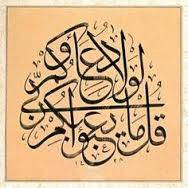 قل ما يعبؤا بكم ربي
لولا دعاؤكم